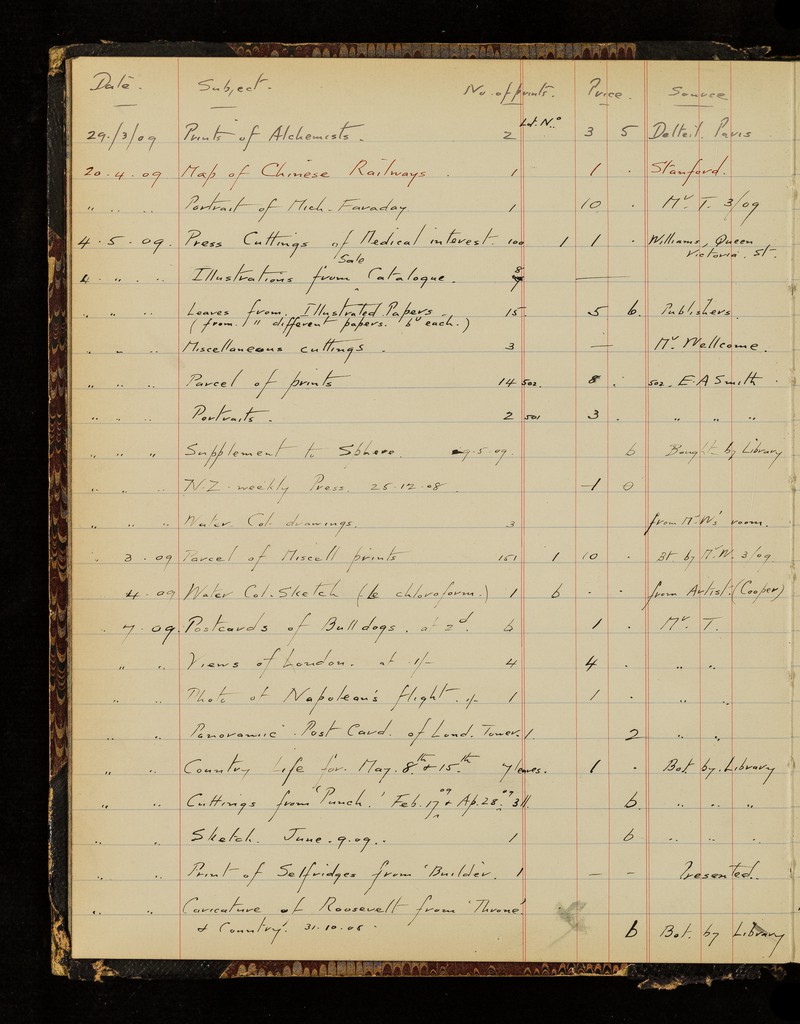 Date. Subject. No of prints. Price. Source
Lot. No.
29./3/09 Prints of Alchemists. 2 3 5 Delteil. Paris
20.4.09 Map of Chinese Railways. 1 1 . Stanford.
" .. .. Portrait of Mich. Faraday 1 10 . Mr. T. 3/09
4.5.09. Press Cuttings of Medical interest. 100 1 1 . Williams, Queen
Victoria. St.
Sale
4 " .. Illustrations from Catalogue. 8 —
" " .. Leaves from Illustrated Papers. 15. 5 6. Publishers.
(from 11 different papers. 6d each.)
" " .. Miscellaneous cuttings. 3 — Mr. Wellcome.
" .. .. Parcel of prints 14 502. 8 . 502. E.A Smith.
" .. .. Portraits. 2 501 3 . " " "
" " " Supplement to Sphere. 9.5.09. 6 Bought by Library
" .. .. N.Z. weekly Press. 25.12.08. 1 0
" .. .. Water Col. drawings. 3 from Mr. W's room.
3.09 Parcel of Miscell prints 151 1 10 . Bt. by Mr. W. 3/09
4.09 Water Col. Sketch (le chloroform.) 1 6 . . from Artist. (Cooper)
7.09. Postcards of Bulldogs. at 2d. 6 1 . Mr. T.
" .. Views of London. at 1/- 4 4 . " "
" .. Photo of Napolean's flight. 1/- 1 1 . " "
" " Panoramic Post Card. of Lond. Tower. 1. 2 " "
" " Country Life for May. 8th + 15th 7 leaves. 1 . Bot. by Library
" " Cuttings from 'Punch.' Feb. 17 09 + Ap. 28. 09 3 ll. 6. " " "
" " Sketch. June. 9.09.. 1 6 .. .. ..
" " Print of Selfridges from 'Builder. 1 — — Presented.
" " Caricature of Roosevelt from 'Throne'
& Country'. 31.10.08. 6 Bot. by Library